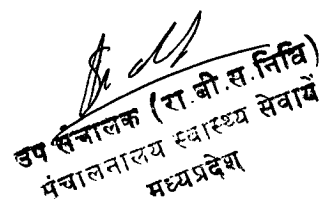 उप संचालक (रा.बी.स.निवि)
संचालनालय स्वास्थ्य सेवायें
मध्यप्रदेश